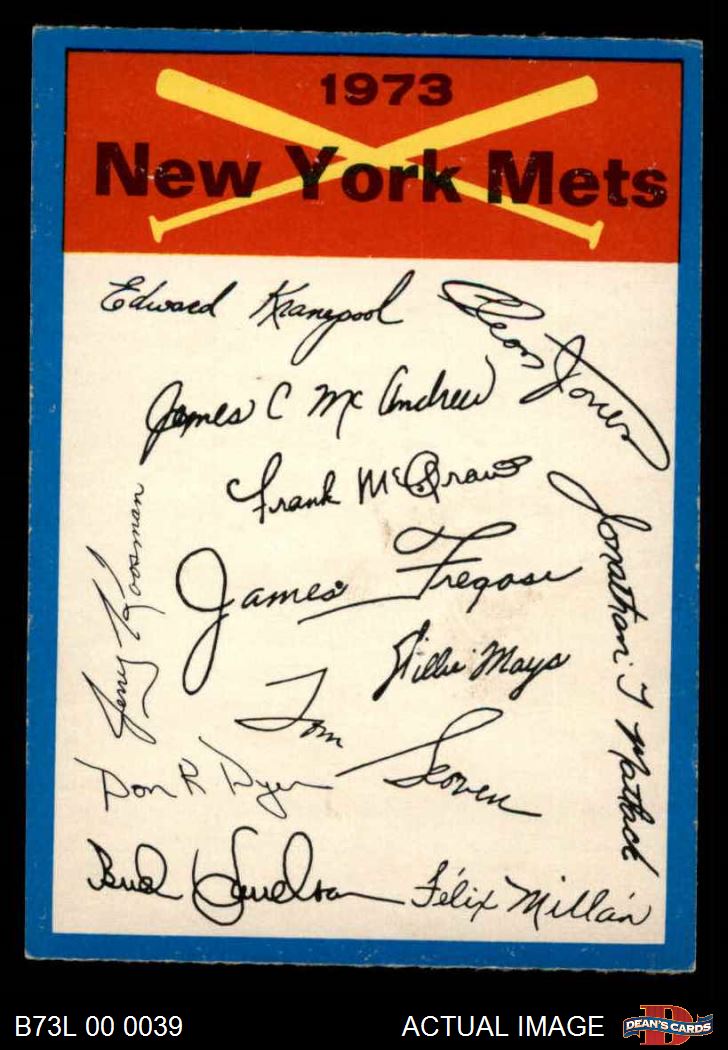 1973
New York Mets
Edward Kranepool
Cleon Jones
James C McAndrew
Frank McGraw
Jerry Koosman
James Fregosi
Jonathan T Matlack
Willie Mays
Tom Seaver
Don R Dyer
Bud Harrelson
Félix Millán
B73L 00 0039
ACTUAL IMAGE
D
DEAN'S CARDS